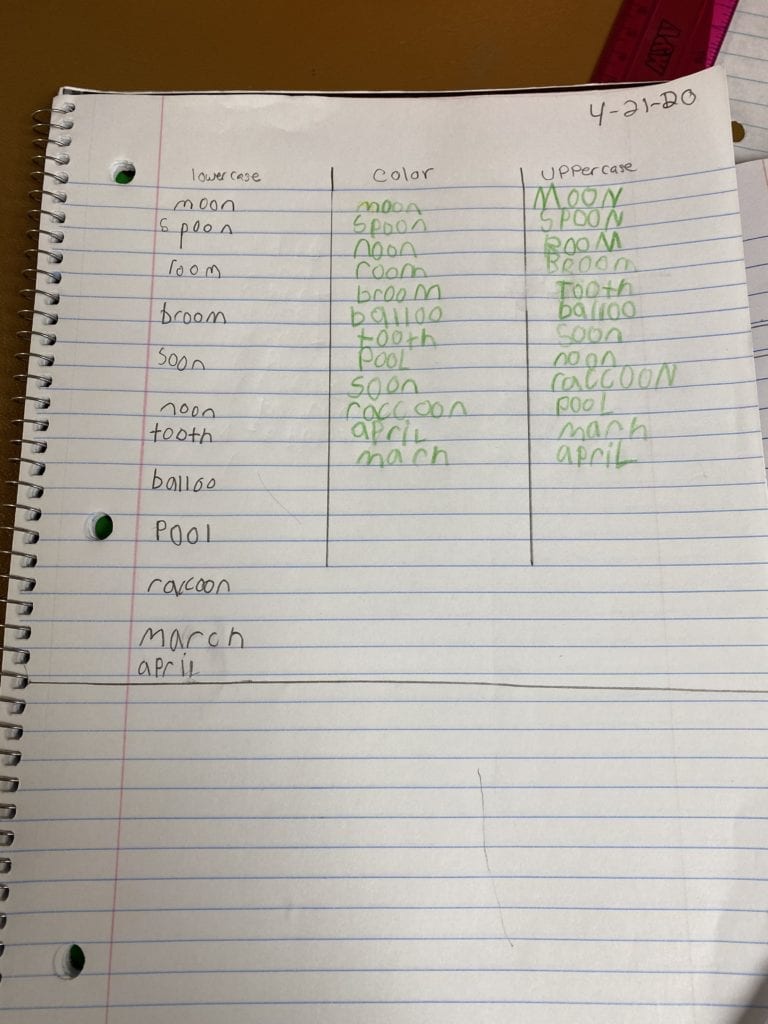 4-21-20
lowercase color uppercase
moon moon MOON
spoon spoon SPOON
noon ROOM
room room BROOM
broom Tooth
broom balloo balloo
tooth soon
soon POOL noon
soon raccoon
noon raccoon pool
tooth april march
march april
balloo
pool
raccoon
march
april